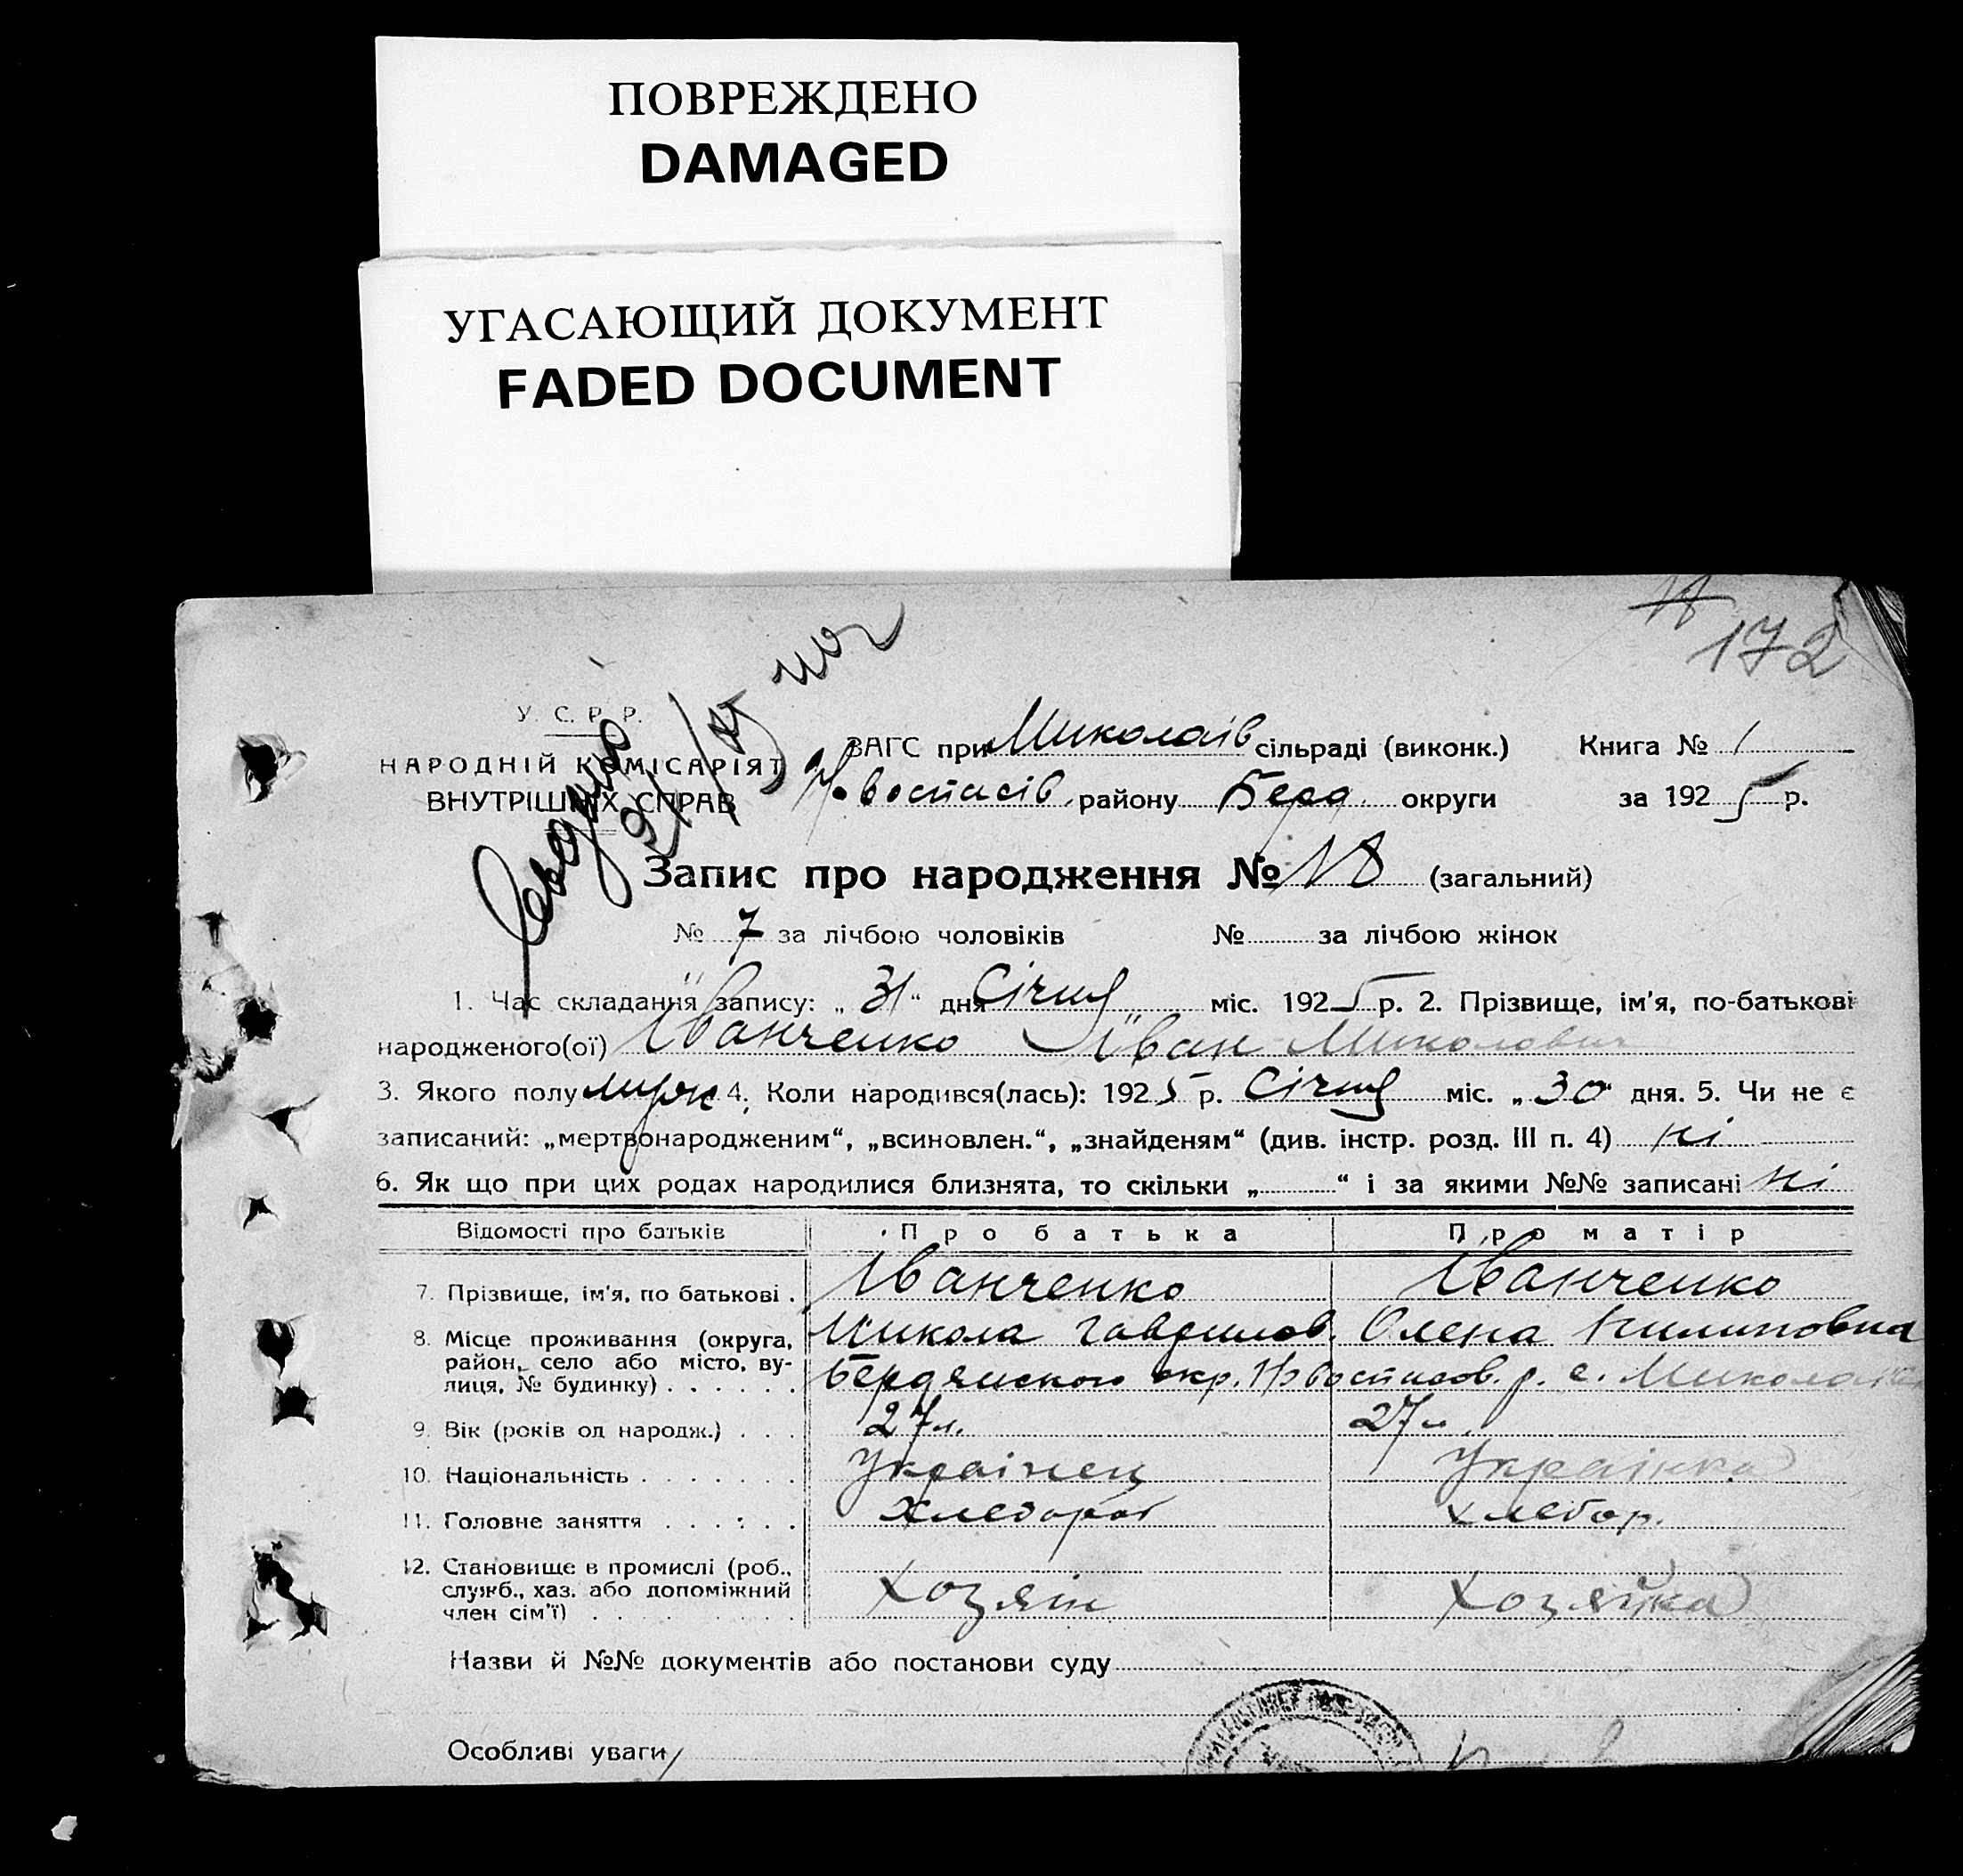 ПОВРЕЖДЕНО
DAMAGED
УГАСАЮЩИЙ ДОКУМЕНТ
FADED DOCUMENT
172
У. С. Р. Р.
НАРОДНІЙ КОМІСАРІЯТ
ВНУТРІШНІХ СПРАВ
ЗАГС при Миколаїв сільраді (виконк.) Книга № 1
Новоспасів. району Берд. округи за 1925 р.
Запис про народження № 18 (загальний)
№ 7 за лічбою чоловіків № за лічбою жінок
1. Час складання запису: „31“ дня Січня міс. 1925 р. 2. Прізвище, ім'я, по-батькові
народженого(ої) Іванченко Іван Миколович
3. Якого полу муж 4. Коли народився(лась): 1925 р. Січня міс. „30“ дня. 5. Чи не є
записаний: „мертвонародженим“, „всиновлен.“, „знайденям“ (див. інстр. розд. III п. 4) ні
6. Як що при цих родах народилися близнята, то скільки „ “ і за якими №№ записані ні
Відомості про батьків Про батька Про матір
7. Прізвище, ім'я, по батькові . Іванченко Іванченко
Микола Гаврилов. Олена Пилиповна
8. Місце проживання (округа, район, село або місто, вулиця, № будинку) . . . . . . Бердянського окр. Новоспасов. р. с. Миколаївка
9. Вік (років од народж.) . . . 27 л. 27 л.
10. Національність . . . . . . . Українец Українка
11. Головне заняття . . . . . . Хлебороб хлебор.
12. Становище в промислі (роб., служб., хаз. або допоміжний член сім'ї) . . . . . . . . . Хозяін Хозяйка
Назви й №№ документів або постанови суду
Особливі уваги